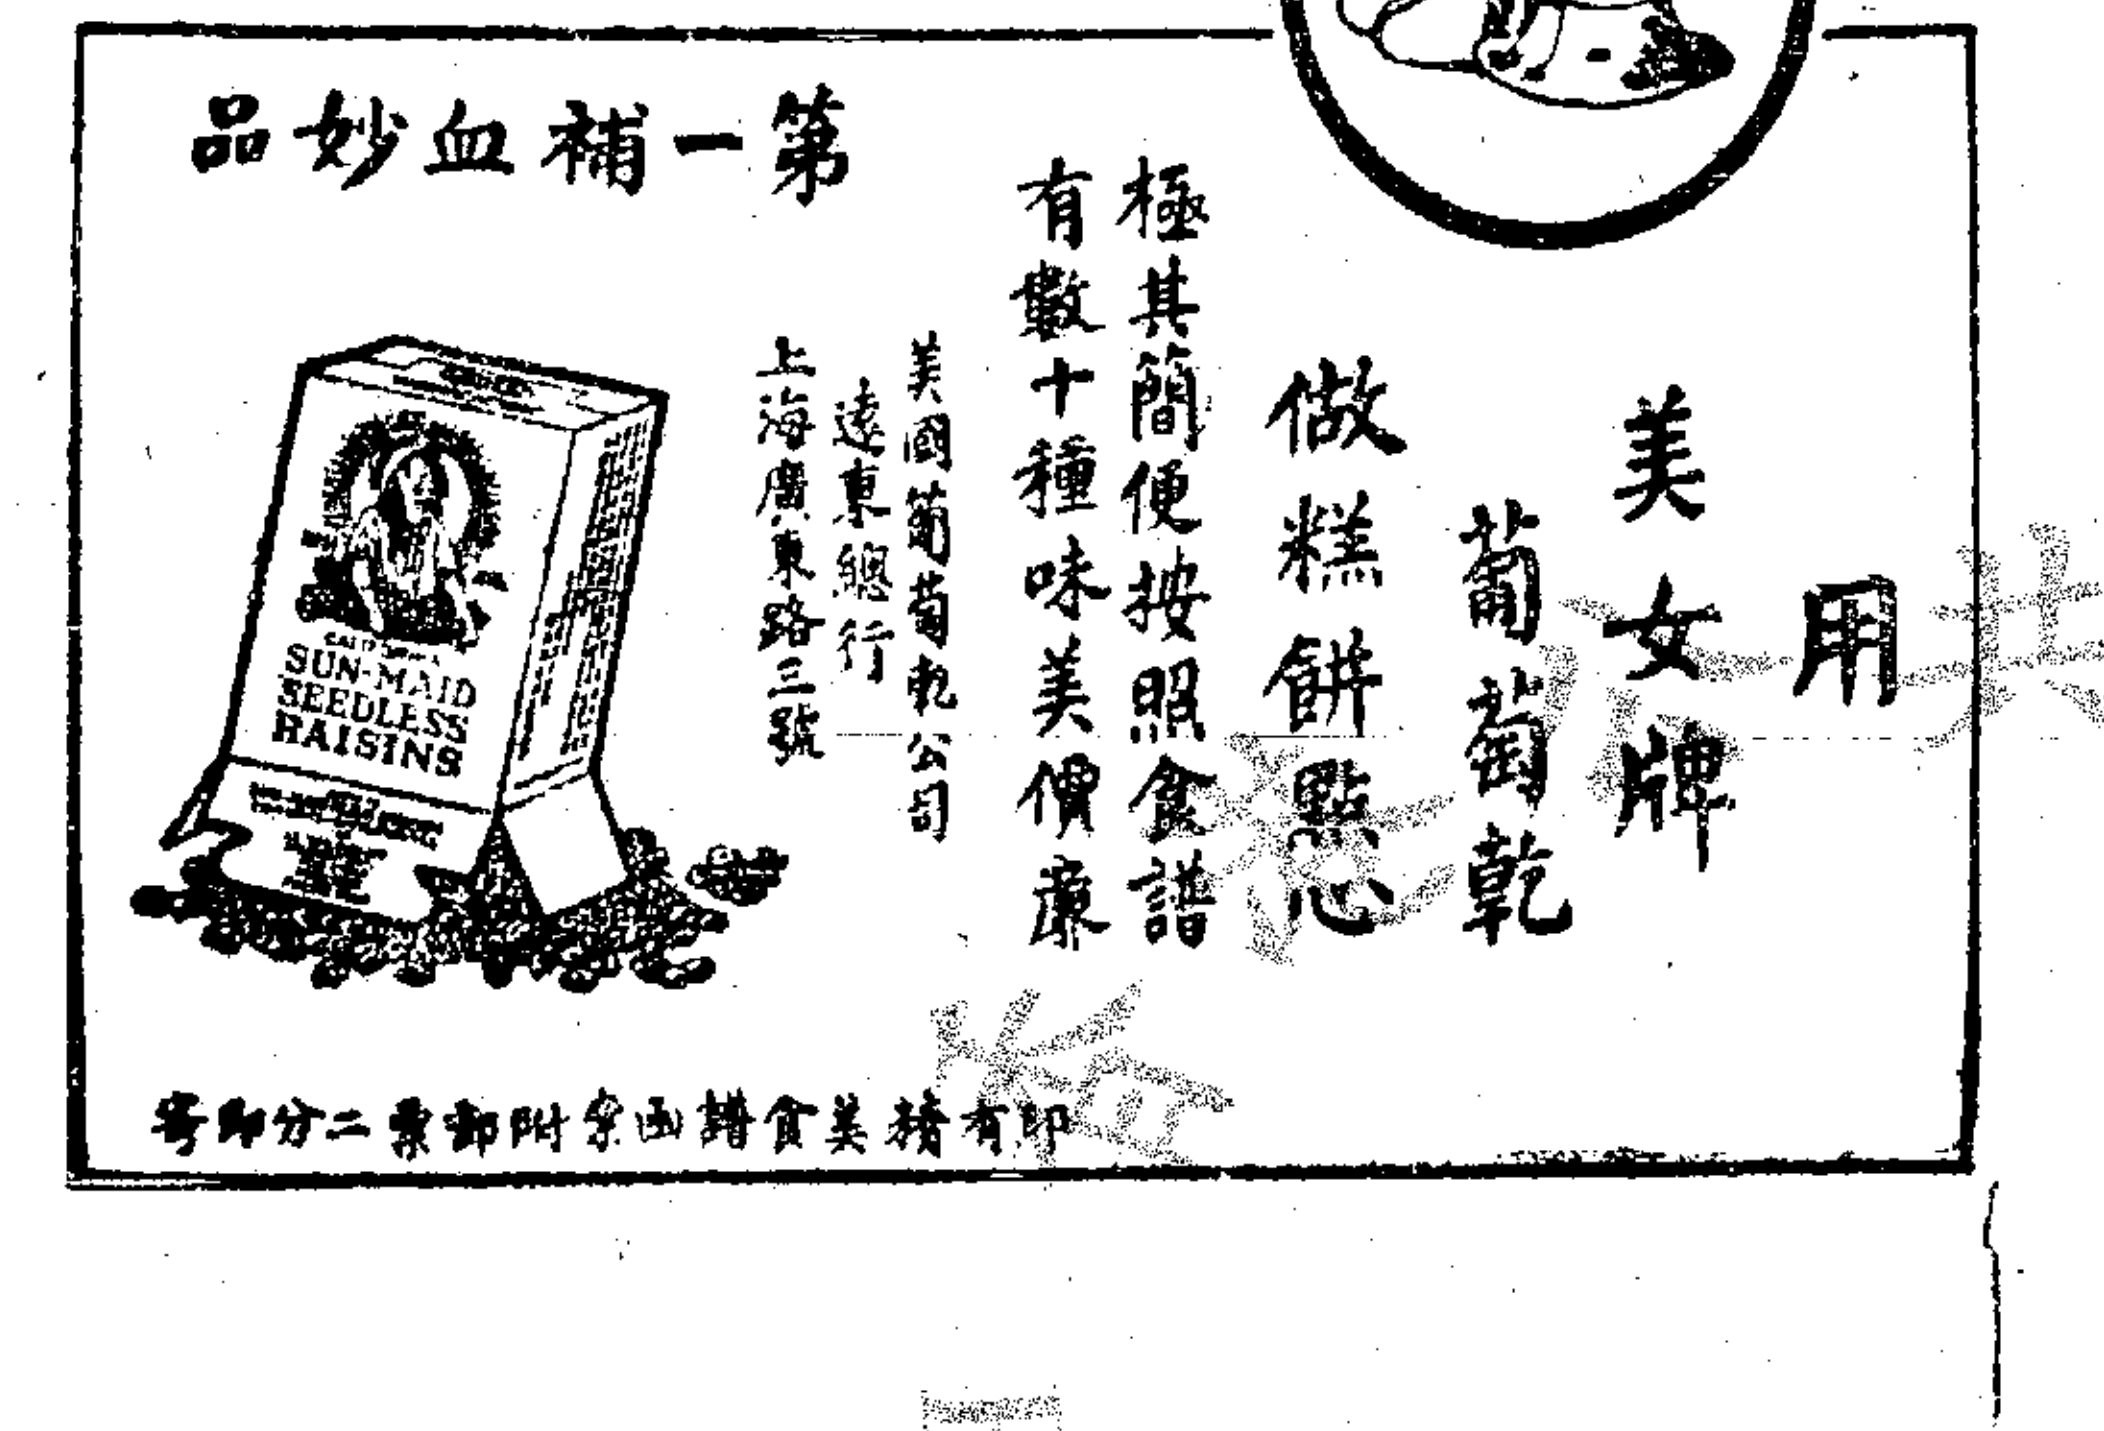 用
美女牌
葡萄乾
做糕餅點心
極其簡便按照食譜
有數十種味美價廉
美國葡萄乾公司
遠東總行
上海廣東路三號
第一補血妙品
SUN-MAID
SEEDLESS
RAISINS
印有精美食譜函索附郵票二分即寄